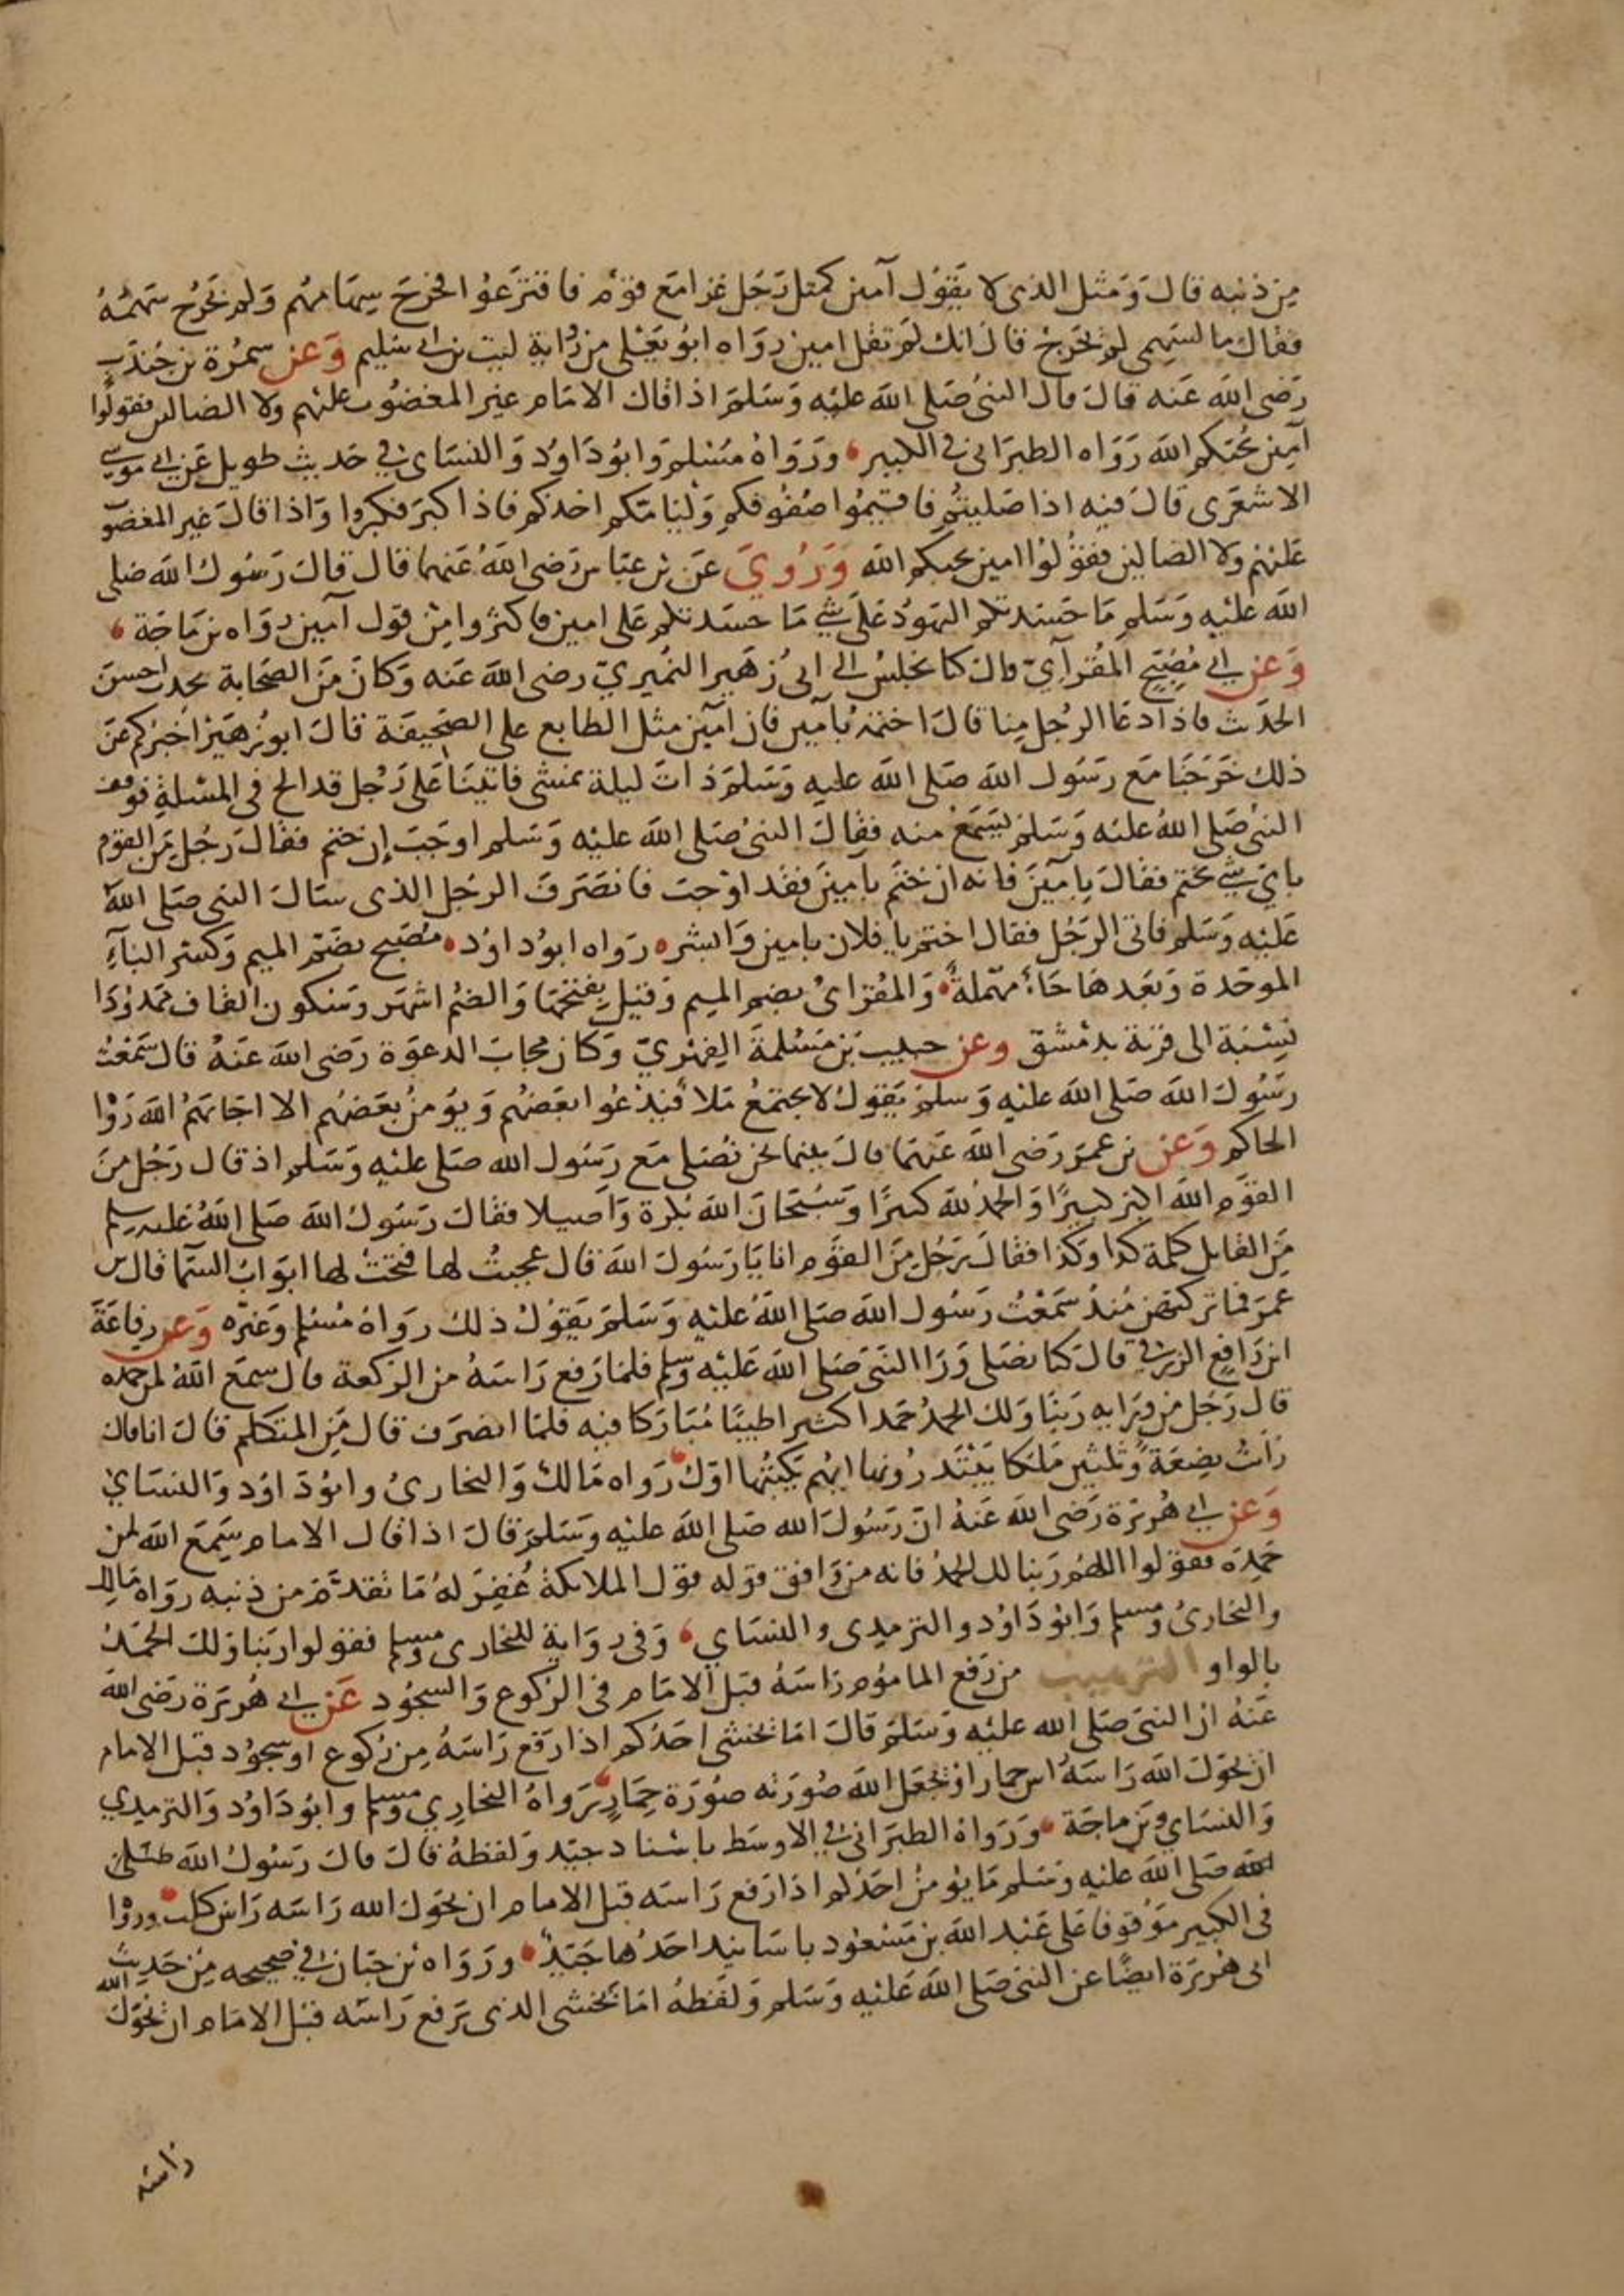 من ذنبه قال وَمثل الذى لا يَقوُل آمين كمثل رَجَل غزا مَع قوْم فاقترَعوُا فخرَجَ سِهَامهُم وَلم تخرُج سَهمُهُ
فقال ما لسَهمى لم يخرَج قال انك لم تقل امين روَاه ابوُ يَعْلى من رواية ليث بن ابى سُليم وَعن سمُرة بن جُندَب
رَضى الله عَنه قالَ قال النبىُ صَلى الله عليْه وَسَلمَ اذا قال الامَام غير المغضوُب عليْهم ولا الضالين فقولوُا
آمين يحُبكم الله رَوَاه الطبرَانى فى الكبير ورَوَاهُ مُسْلم وَابوُ دَاوُد وَالنسَاى فى حَديث طويل عَن ابى موسى
الاشعَرى قالَ فيه اذا صَليتُم فاقيمُوا صُفوُفكم وَليَامّكم احَدكم فاذا كبرَ فكبروا وَاذا قالَ غير المغضوب
عَليْهم ولا الضالين فقوُلوُا امين يحبكم الله وَرُويَ عَن بن عبَاس رَضى اللهُ عَنهما قال قالَ رَسُول الله صَلى
الله عليْه وَسَلم مَا حَسَدتكم اليَهوُد عَلى شى مَا حسَدتكم عَلى امين فاكثروا مِن قول آمين روَاه بن مَاجَة
وَعن ابى مُصَبّح المقرآىّ قال كنا نجلسُ الى ابى زهَير النمُيرىّ رضى الله عَنه وَكانَ مِن الصَحَابة يحدث احسنَ
الحدَيث فاذا دعَا الرجُل مِنا قالَ اختمهُ بآمين فان آمين مثل الطابع على الصَحيفة قالَ ابوُ زهَير اخبرُكم عَن
ذلك خرَجنَا مَع رَسُول الله صَلى الله عليه وَسَلمَ ذاتَ ليلة نمشى فاتينَا عَلى رَجُل قد الح فى المسْلة فوقف
النبىُ صَلى اللهُ عليْه وَسَلمَ يَسَمَعُ منه فقالَ النبىُ صَلى الله عليْه وَسَلم اوجَبَ إن ختم فقالَ رَجُل مِن القوْم
باىّ شى يختم فقالَ بِآمينَ فانه ان ختَم بآمينَ فقد اوْجبَ فانصَرَف الرجَل الذى سَالَ النبى صَلى اللهُ
عَليْه وَسَلم فاتى الرَجُل فقال اختم يا فلان بامين وَابشره رَواه ابوُ داوُد مُصَبح بضَمّ الميم وَكسْر البآءِ
الموحَدة وَبَعدهَا حَاءٌ مهْمَلةٌ وَالمقرَاىُ بضم الميم وَقيل بفتحَهَا وَالضمُ اشهَر وَسَكون القاف ممدُودًا
نِسْبَة الى قريَة بدمَشْق وعن حبيب بن مَسْلمةَ الفِهْرىّ وَكان مجابَ الدعوَة رَضى الله عَنهُ قال سَمَعْتُ
رسَوُلَ الله صَلى الله عَليْه وَسَلمَ يَقوُل لا يجتمَعُ مَلأ فَيدْعُوا بعَضهُم وَيوُمنُ بعَضهُم الا اجَابهَمُ الله رَوَا
الحاكم وَعن بن عمرَ رَضى الله عَنهمَا قالَ بينما نحن نصُلى مَع رَسَول الله صَلى عليْه وَسَلم اذ قال رَجُل مِنَ
القوَم الله اكبر كبيرًا وَالحمدُ لله كثيرًا وَسُبْحَانَ الله بُكرة وَاصيلا فقالَ رَسُول الله صَلى اللهُ عَليه سلم
مَن القايل كلمَة كذا وكذَا فقالَ رَجُل مِنَ القوَم انا يَا رَسُولَ الله قال عجبتُ لها فتحَتْ لها ابوَابُ السمآ قال بن
عمرَ فما تركتهن مُنذُ سَمَعْتُ رَسُول الله صَلى اللهُ عليْه وَسَلمَ يَقوُل ذلك روَاهُ مُسْلم وَغيْره وَعن رفاعَةَ
ابن رَافع الزرقى قالَ كنا نصَلى وَرَا النبَى صَلى الله عَليْه وسلم فلمَا رَفع رَاسَهُ من الرَكعة قال سِمعَ اللهُ لمن حمده
قال رَجُل من وَرَايه رَبنَا وَلك الحمدُ حمَدا كثيرا طيبًا مُبَارَكا فيه فلمّا انصرَف قال مَن المتكلم قالَ انا قال
رَاتُ بِضِعَةً وَثلثين مَلكا يَبْتَدرُونها ايهُم يَكتبُها اوّلُ رَواه مَالكُ وَالبخارىُ وابوُدَ اوُد وَالنسَاىُ
وَعن ابى هُريَرة رَضى الله عَنهُ انّ رَسُولَ الله صَلى الله عليْه وَسَلمَ قالَ اذا قال الامام سَمِعَ الله لمن
حمَدَه فقوُلوا اللهمُ رَبنا لك الحمدُ فانه من وَافق قوله قوْل الملايكةُ غفِرَ لهُ مَا تقدّمَ من ذنبه روَاه مَالِك
والبخارىُ ومسلم وَابوُ دَاوُد والترميدى والنسَاىِ وَفى روَاية للبخارى ومسلم فقوُلوا ربنا وَلك الحمَدُ
بالواو الترهيب من رَفع المامُوم رَاسَهُ قبَل الامَام فى الرَكوع وَالسجُود عَن ابى هُريرَة رَضى الله
عَنهُ ان النبىَ صَلى الله عليْه وَسَلمَ قالَ امَا يخشى احَدُكم اذا رَفع رَاسَهُ مِن رُكوع او سجوُد قبل الامام
ان يحَوّلَ الله رَاسَهُ راس حمار اوْ يجَعَل الله صُورَته صُوَرة حِمَارٍ رَواهُ البخارِى ومسلم وابوُ دَاوُد وَالترميدى
وَالنسَاى وبن ماجَة وَرَوَاهُ الطبرَانى فى الاوسَط باسْناد جيّد وَلفظهُ قالَ قالَ رَسُول الله صَلى
الله صَلى الله عليْه وَسَلم مَا يوُمنُ احَدُكم اذا رَفع رَاسَه قبل الامام ان يحَوّل الله رَاسَه رَاس كلب وروَا
فى الكبير مَوْقوفا عَلى عَبْد الله بن مَسْعوُد باسَانيد احَدُها جَيّدٌ ورَوَاه بْن حبَان فى صَحيحه مِن حَديث
ابى هُريرَة ايضًا عن النبى صَلى الله عَليْه وَسَلم وَلفظهُ امَا يخشى الذى يرَفع رَاسَه قبْل الامَام ان يحَوّل الله
رَاسَه